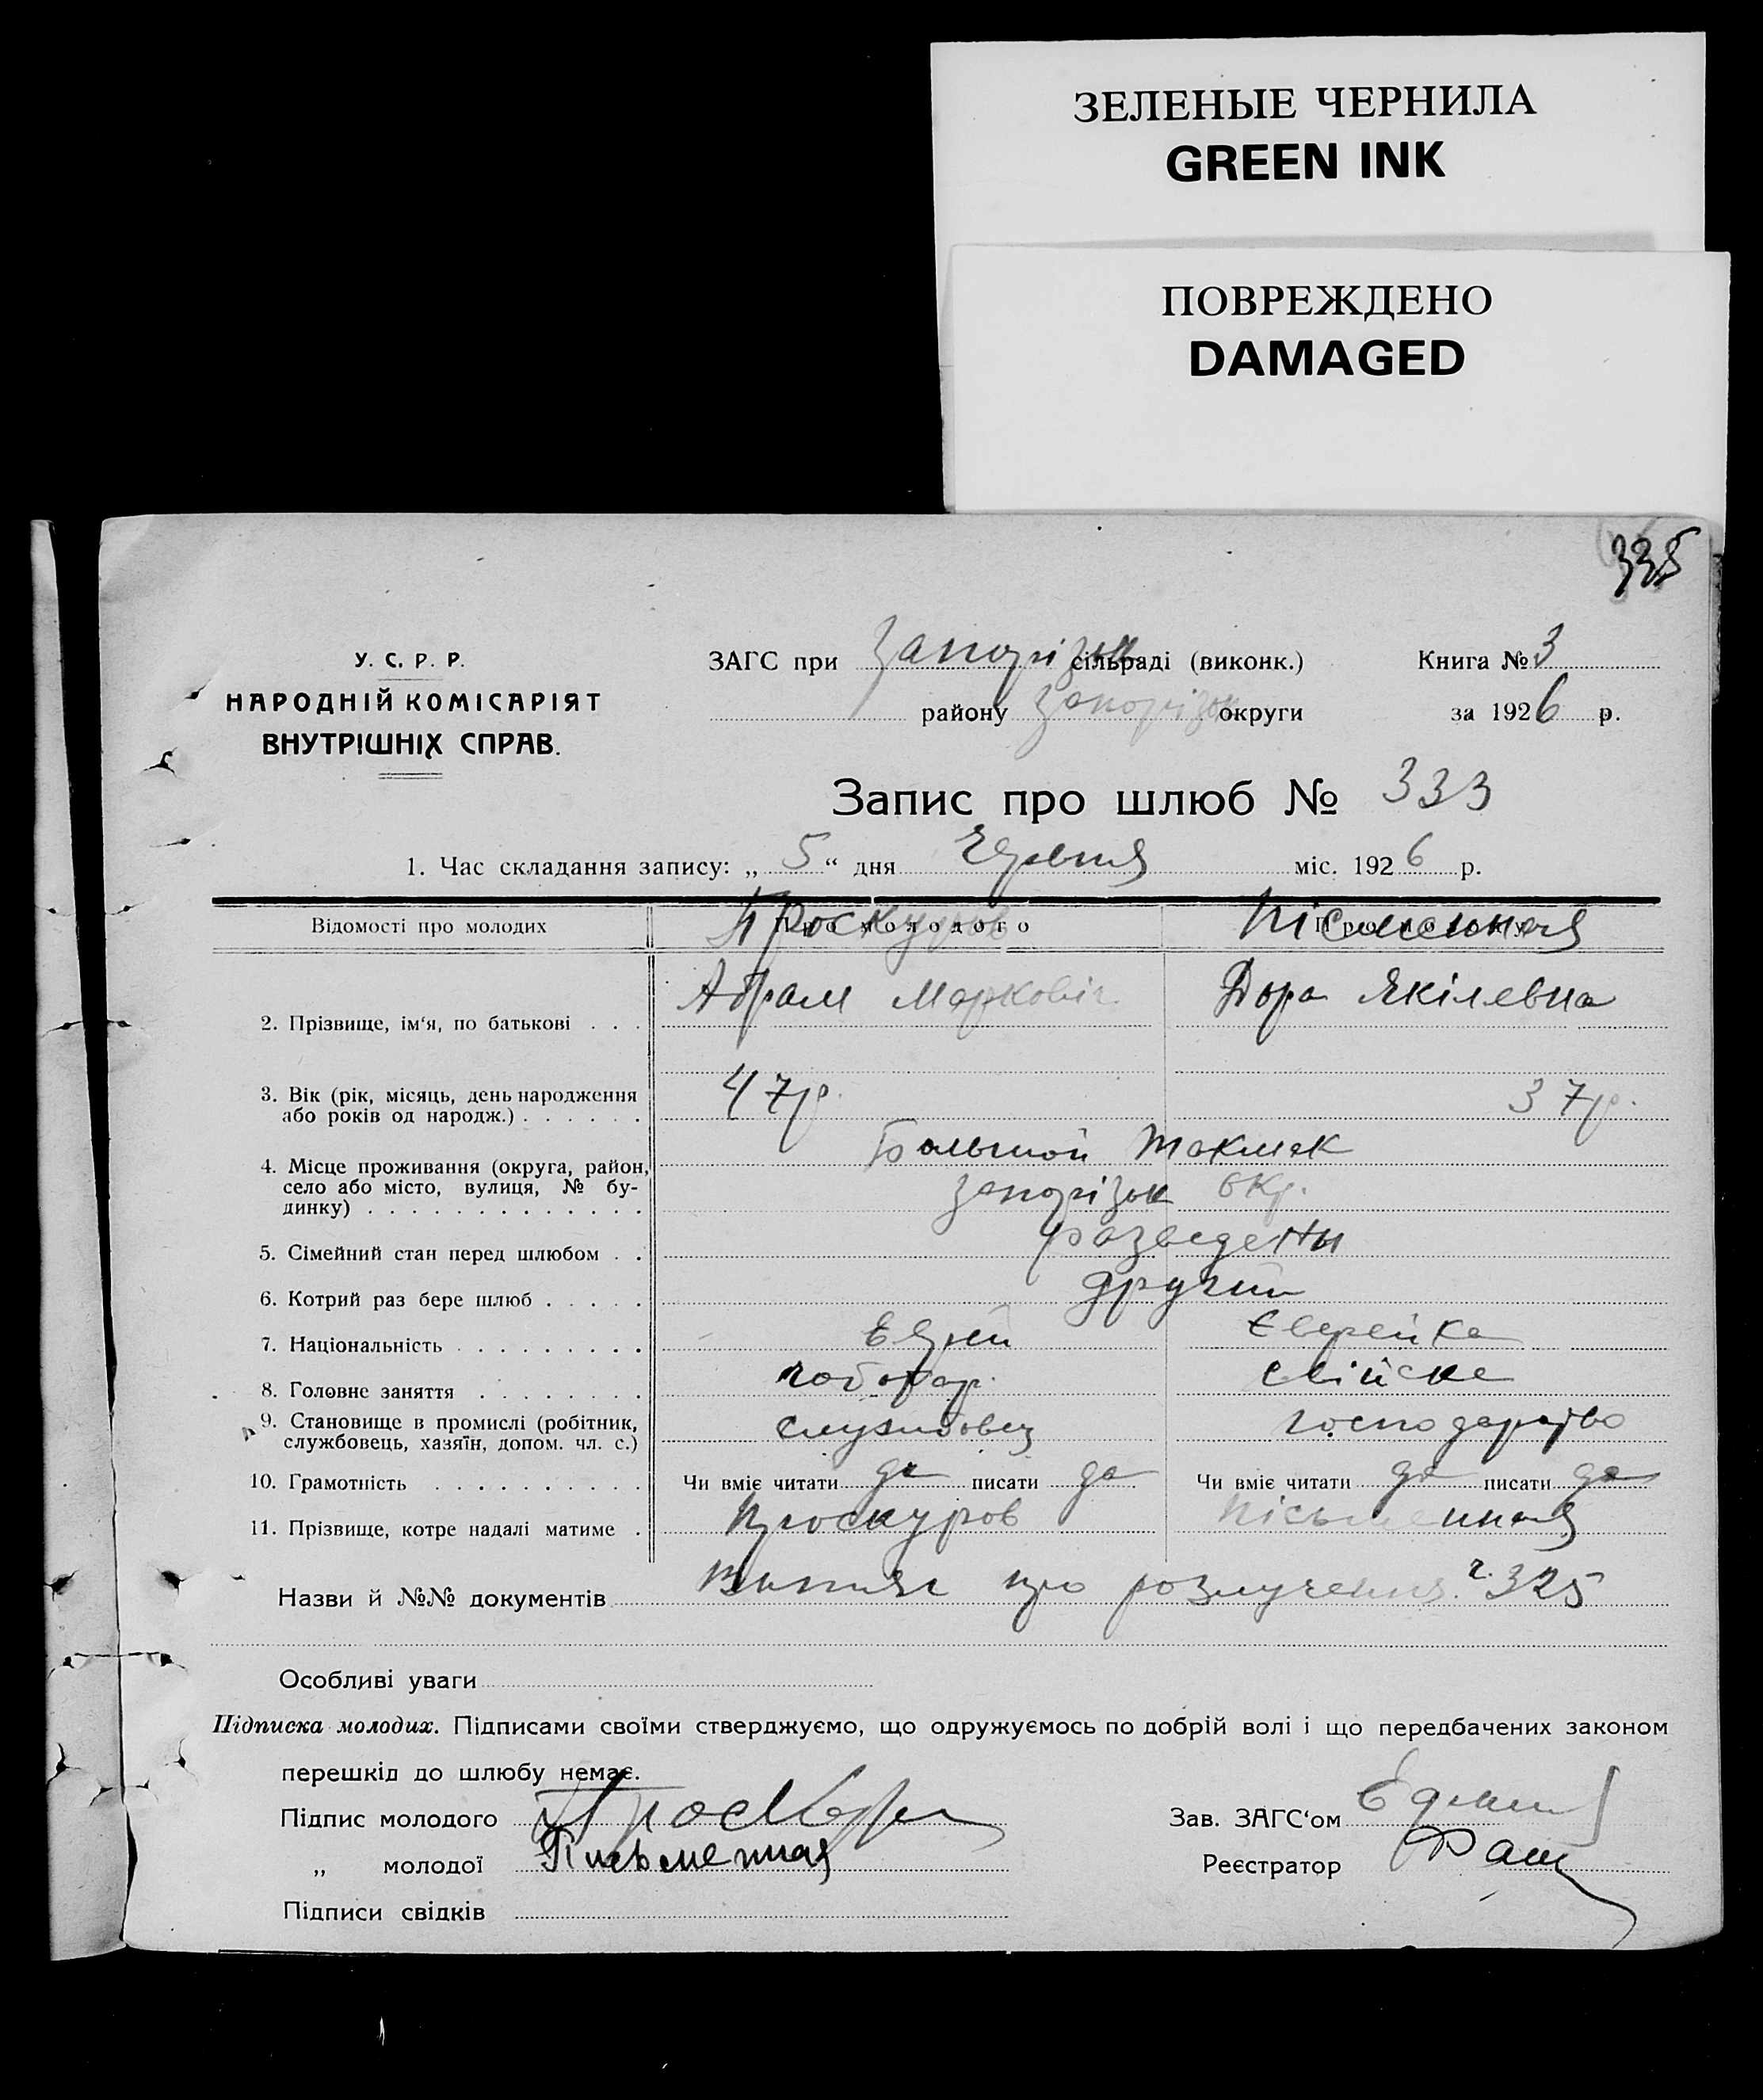 ЗЕЛЕНЫЕ ЧЕРНИЛА
GREEN INK
ПОВРЕЖДЕНО
DAMAGED
335
У. С. Р. Р.
НАРОДНІЙ КОМІСАРІЯТ
ВНУТРІШНІХ СПРАВ.
ЗАГС при Запорізьк сільраді (виконк.) Книга № 3
району Запорізьк округи за 1926 р.
Запис про шлюб № 333
1. Час складання запису: „ 5 “ дня Червня міс. 1926 р.
Відомості про молодих Про молодого Проскуров Про молоду Пісьменная
Абрам Маркович Дора Якілевна
2. Прізвище, ім‘я, по батькові . . .
3. Вік (рік, місяць, день народження 47 р. 37 р.
або років од народж.) . . . . . .
4. Місце проживання (округа, район, Большой Токмак
село або місто, вулиця, № бу- Запорізьк окр.
динку) . . . . . . . . . . . . .
5. Сімейний стан перед шлюбом . . разведени
6. Котрий раз бере шлюб . . . . . другий
7. Національність . . . . . . . . . Еврей Єврейка
8. Головне заняття . . . . . . . . чоботар. свійске
9. Становище в промислі (робітник, службовец господарство
службовець, хазяїн, допом. чл. с.)
10. Грамотність . . . . . . . . . . Чи вміє читати да писати да Чи вміє читати да писати да
11. Прізвище, котре надалі матиме . Проскуров Пісьменная
Назви й №№ документів Витяг про розлучення ч. 325
Особливі уваги
Підписка молодих. Підписами своїми стверджуємо, що одружуємось по добрій волі і що передбачених законом
перешкід до шлюбу немає.
Підпис молодого Зав. ЗАГС‘ом
„ молодої Письменная Реєстратор
Підписи свідків